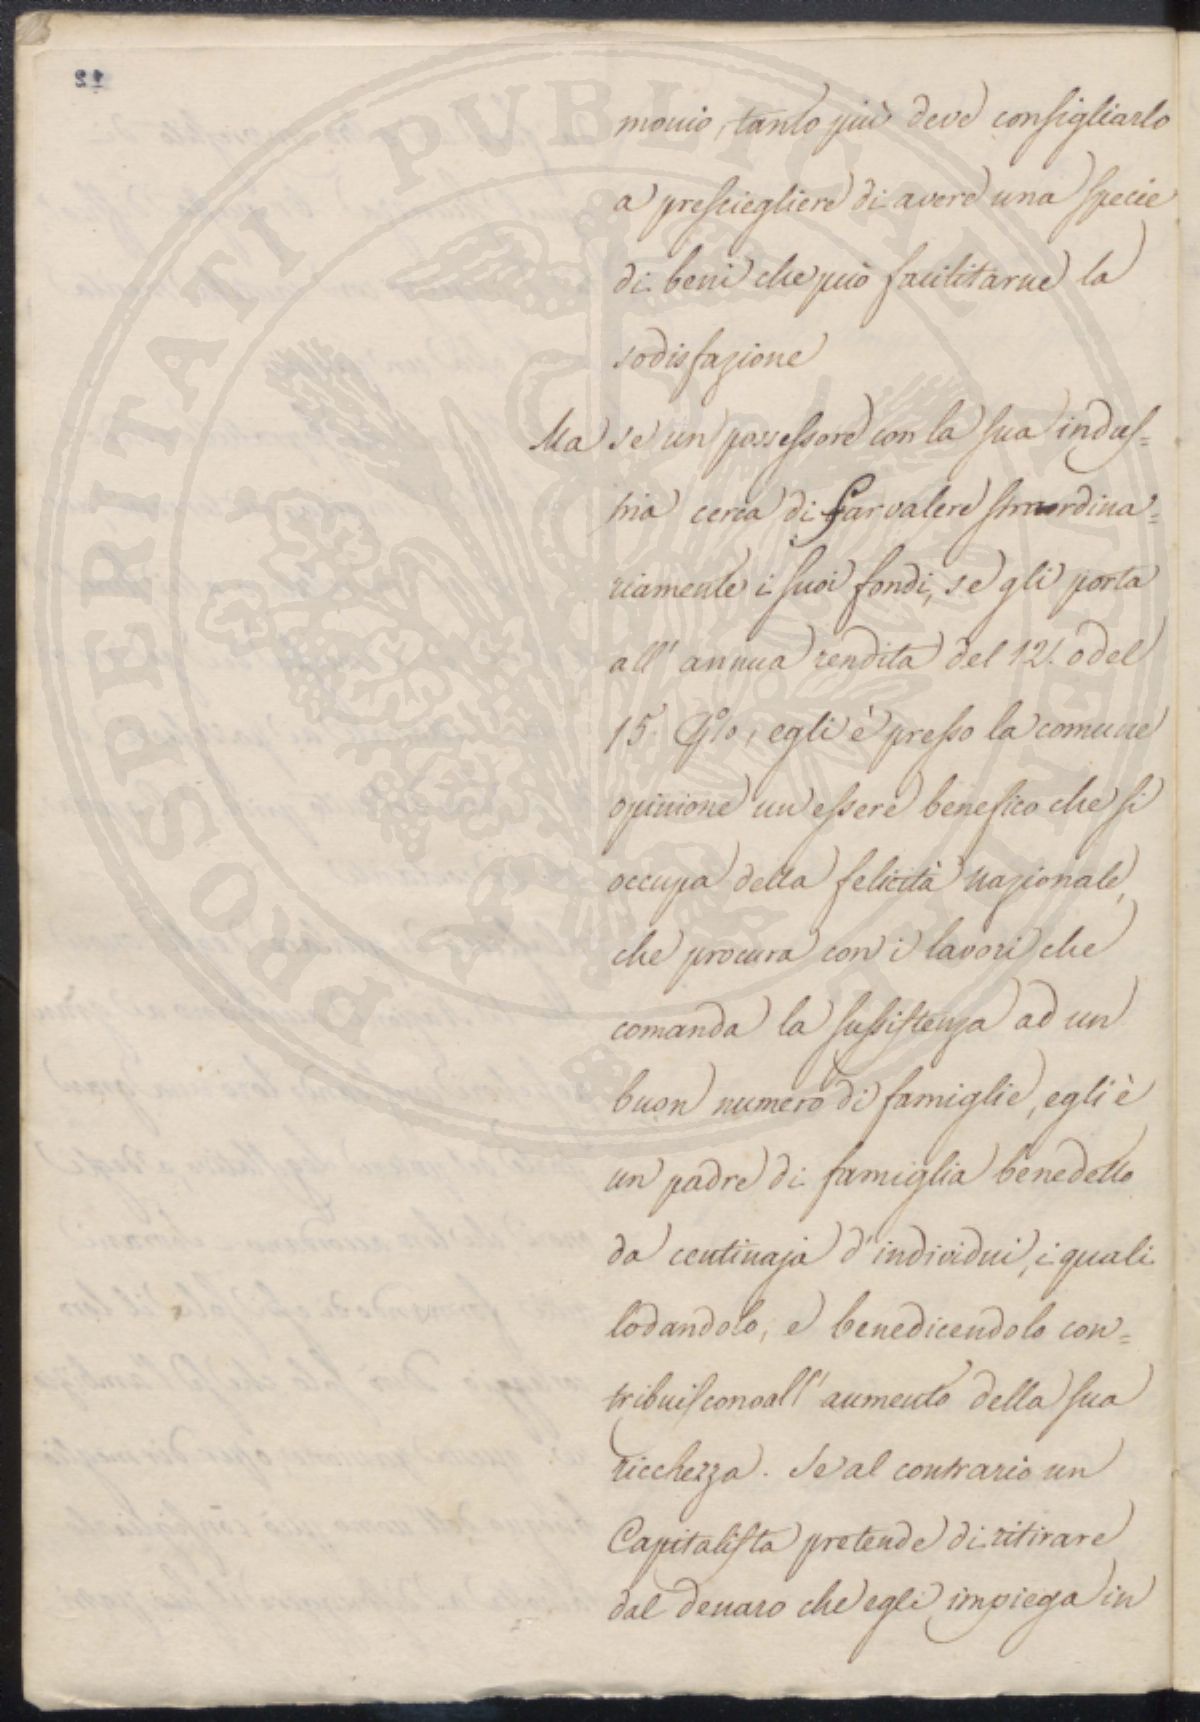 PROSPERITATI PUBLICAE AUGENDAE
monio, tanto più deve consigliarlo
a presciegliere di avere una specie
di beni che può facilitarne la
sodisfazione
Ma se un possessore con la sua indus=
tria cerca di far valere straordina=
riamente i suoi fondi, se gli porta
all' annua rendita del 12. o del
15. P%, egli è presso la comune
opinione un essere benefico che si
occupa della felicità nazionale,
che procura con i lavori che
comanda la sussistenza ad un
buon numero di famiglie, egli è
un padre di famiglia benedetto
da centinaja d'individui, i quali
lodandolo, e benedicendolo con=
tribuiscono all' aumento della sua
ricchezza. Se al contrario un
Capitalista pretende di ritirare
dal denaro che egli impiega in